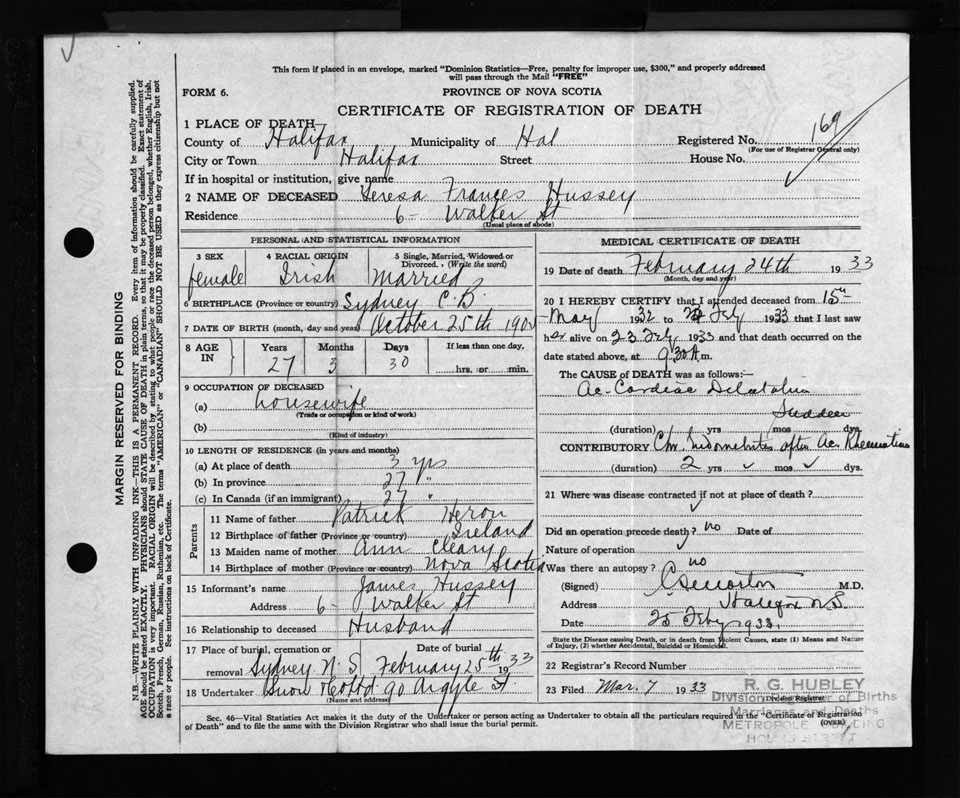 This form if placed in an envelope, marked "Dominion Statistics—Free, penalty for improper use, $300," and properly addressed
will pass through the Mail "FREE"
FORM 6.
PROVINCE OF NOVA SCOTIA
CERTIFICATE OF REGISTRATION OF DEATH
169
1 PLACE OF DEATH—
County of Halifax Municipality of Hal Registered No.
(For use of Registrar General only)
City or Town Halifax Street House No.
If in hospital or institution, give name
2 NAME OF DECEASED Teresa Frances Hussey
Residence 6- Walker St
(Usual place of abode)
PERSONAL AND STATISTICAL INFORMATION
3 SEX 4 RACIAL ORIGIN 5 Single, Married, Widowed or
Divorced. (Write the word)
female Irish Married
6 BIRTHPLACE (Province or country) Sydney C.B.
7 DATE OF BIRTH (month, day and year) October 25th
8 AGE IN Years Months Days If less than one day,
27 3 30 hrs. or min.
9 OCCUPATION OF DECEASED
(a) housewife
(Trade or occupation or kind of work)
(b)
(Kind of industry)
10 LENGTH OF RESIDENCE (in years and months)
(a) At place of death 3 yrs
(b) In province 27 "
(c) In Canada (if an immigrant) 27 "
Parents
11 Name of father Patrick Heron
12 Birthplace of father (Province or country) Ireland
13 Maiden name of mother Ann Cleary
14 Birthplace of mother (Province or country) Nova Scotia
15 Informant's name James Hussey
Address 6- Walker St
16 Relationship to deceased Husband
17 Place of burial, cremation or Date of burial
removal Sydney N.S. February 25th 1933
18 Undertaker Snow & Co Ltd 90 Argyle St
(Name and address)
MEDICAL CERTIFICATE OF DEATH
19 Date of death February 24th 1933
(Month, day and year)
20 I HEREBY CERTIFY that I attended deceased from 15th
May 1932 to Feby 1933 that I last saw
her alive on 23 Feby 1933 and that death occurred on the
date stated above, at 9.30 A.m.
The CAUSE of DEATH was as follows:—
Ac. Cardiac Dilatation
Sudden
(duration) yrs mos dys.
CONTRIBUTORY Chr. after Ac. Rheumatism
(duration) 2 yrs mos dys.
21 Where was disease contracted if not at place of death?
Did an operation precede death? no Date of
Nature of operation
Was there an autopsy? no
(Signed) M.D.
Address Halifax N.S.
Date 25 Feby 1933.
State the Disease causing Death, or in death from Violent Causes, state (1) Means and Nature
of Injury, (2) whether Accidental, Suicidal or Homicidal.
22 Registrar's Record Number
23 Filed Mar. 7 1933
Division Registrar
R. G. HUBLEY
Division Registrar of Births
Marriages and Deaths
METROPOLE BUILDING
HOLLIS STREET
Sec. 46—Vital Statistics Act makes it the duty of the Undertaker or person acting as Undertaker to obtain all the particulars required in the "Certificate of Registration
of Death" and to file the same with the Division Registrar who shall issue the burial permit.
(OVER)
MARGIN RESERVED FOR BINDING
N.B.—WRITE PLAINLY WITH UNFADING INK—THIS IS A PERMANENT RECORD. Every item of information should be carefully supplied.
AGE should be stated EXACTLY. PHYSICIANS should STATE CAUSE OF DEATH in plain terms, so that it may be properly classified. Exact statement of
OCCUPATION is very important. RACIAL ORIGIN will be described by stating to what people or race the deceased person belonged, whether English, Irish,
Scotch, French, German, Russian, Ruthenian, etc. The terms "AMERICAN" or "CANADIAN" SHOULD NOT BE USED as they express citizenship but not
a race or people. See instructions on back of Certificate.